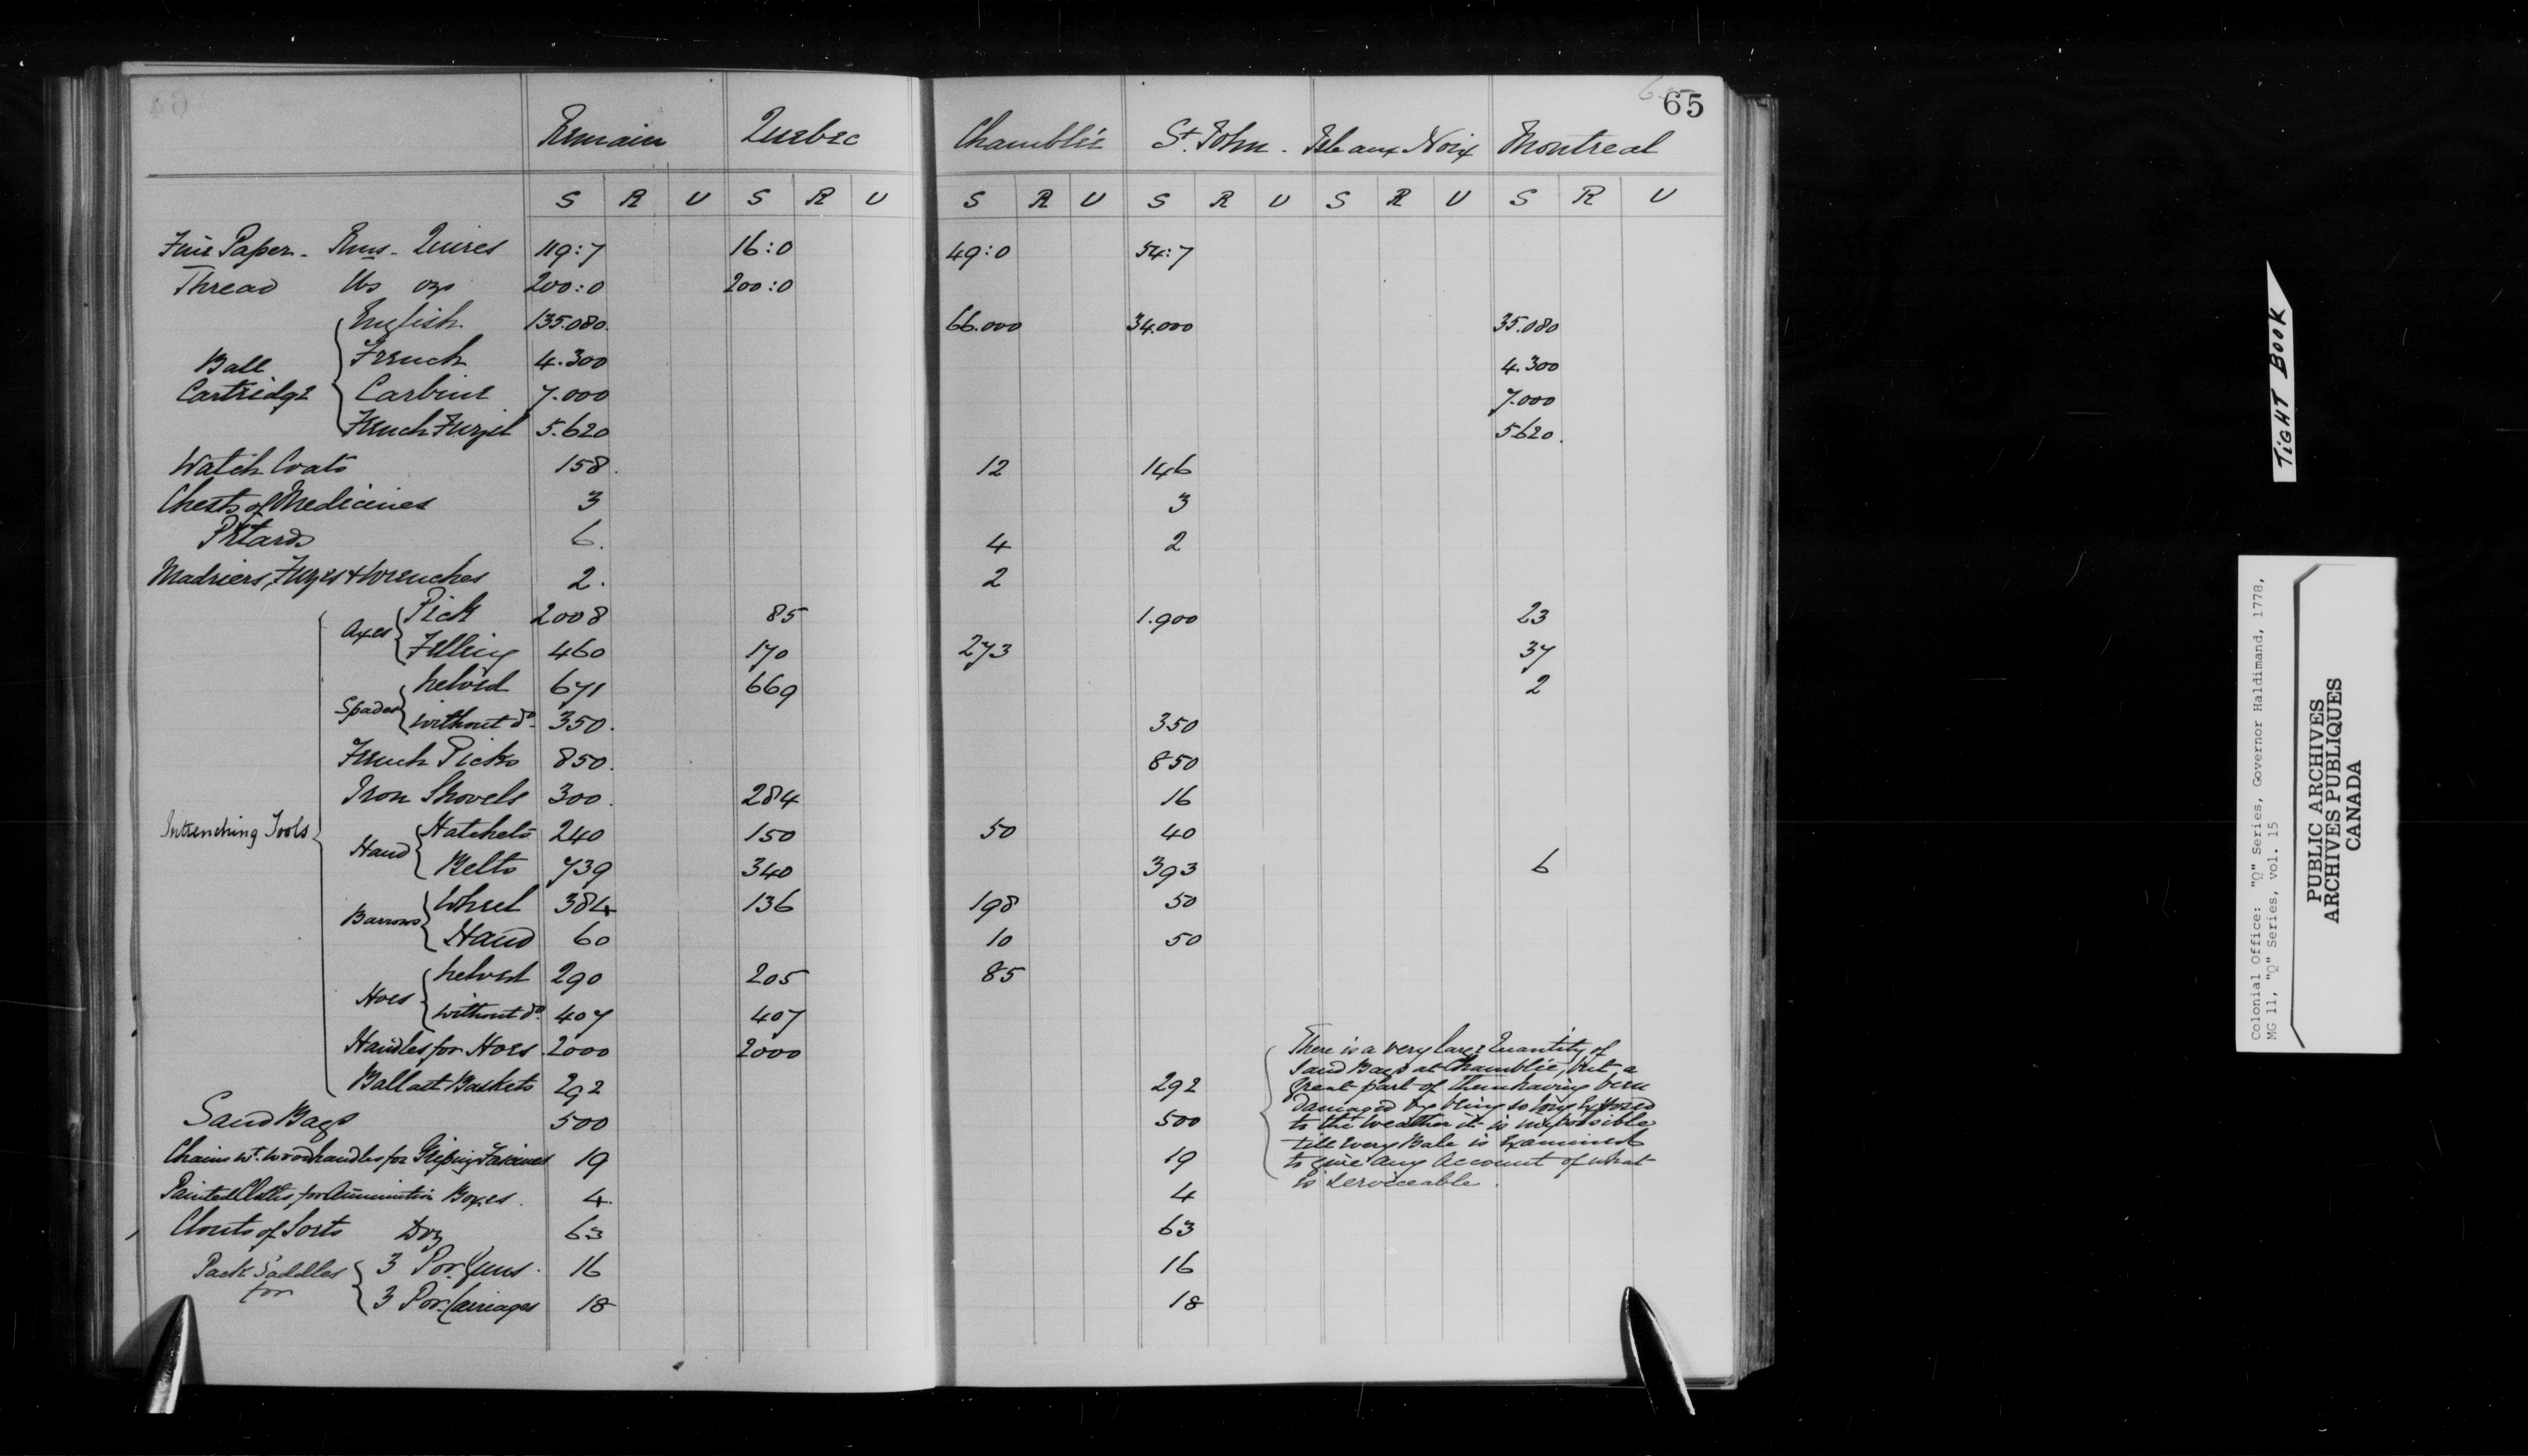 65
Remain Quebec Chamblée St. John. Isle aux Noix Montreal
S R U S R U S R U S R U S R U S R U
Fine Paper. Rms. Quires 119:7 16:0 49:0 54:7
Thread lbs ozs 200:0 200:0
Ball Cartridge { English 135.080. 66.000 34.000 35.080
French 4.300 4.300
Carbine 7.000 7.000
French Fuzil 5.620 5620.
Watch Coats 158. 12 146
Chests of Medicines 3 3
Petards 6. 4 2
Madriers, Fuzes & Wrenches 2. 2
Intrenching Tools { Axes { Pick 2008 85 1.900 23
Felling 460 170 273 37
Spades { helved 671 669 2
without do. 350. 350
French Picks 850. 850
Iron Shovels 300. 284 16
Hand { Hatchets 240 150 50 40
Belts 739 340 393 6
Barrows { Wheel 384 136 198 50
Hand 60 10 50
Hoes { helved 290 205 85
without do. 407 407
Handles for Hoes. 2000 2000
Ballast Baskets 292 292
Sand Bags 500 500
Chains wt. Wood handles for Griping Fascines 19 19
Painted Cloths for Ammunition Boxes. 4. 4
Clouts of Sorts Doz 63 63
Pack Saddles for { 3 Por. Guns. 16 16
3 Por. Carriages 18 18
There is a very large Quantity of
Sand Bags at Chamblée, but a
great part of them having been
damaged by being so long Exposed
to the Weather it is impossible
till Every Bale is Examined
to give any Account of what
is Serviceable.
TIGHT BOOK
Colonial Office: "Q" Series, Governor Haldimand, 1778,
MG 11, "Q" Series, vol. 15
PUBLIC ARCHIVES
ARCHIVES PUBLIQUES
CANADA